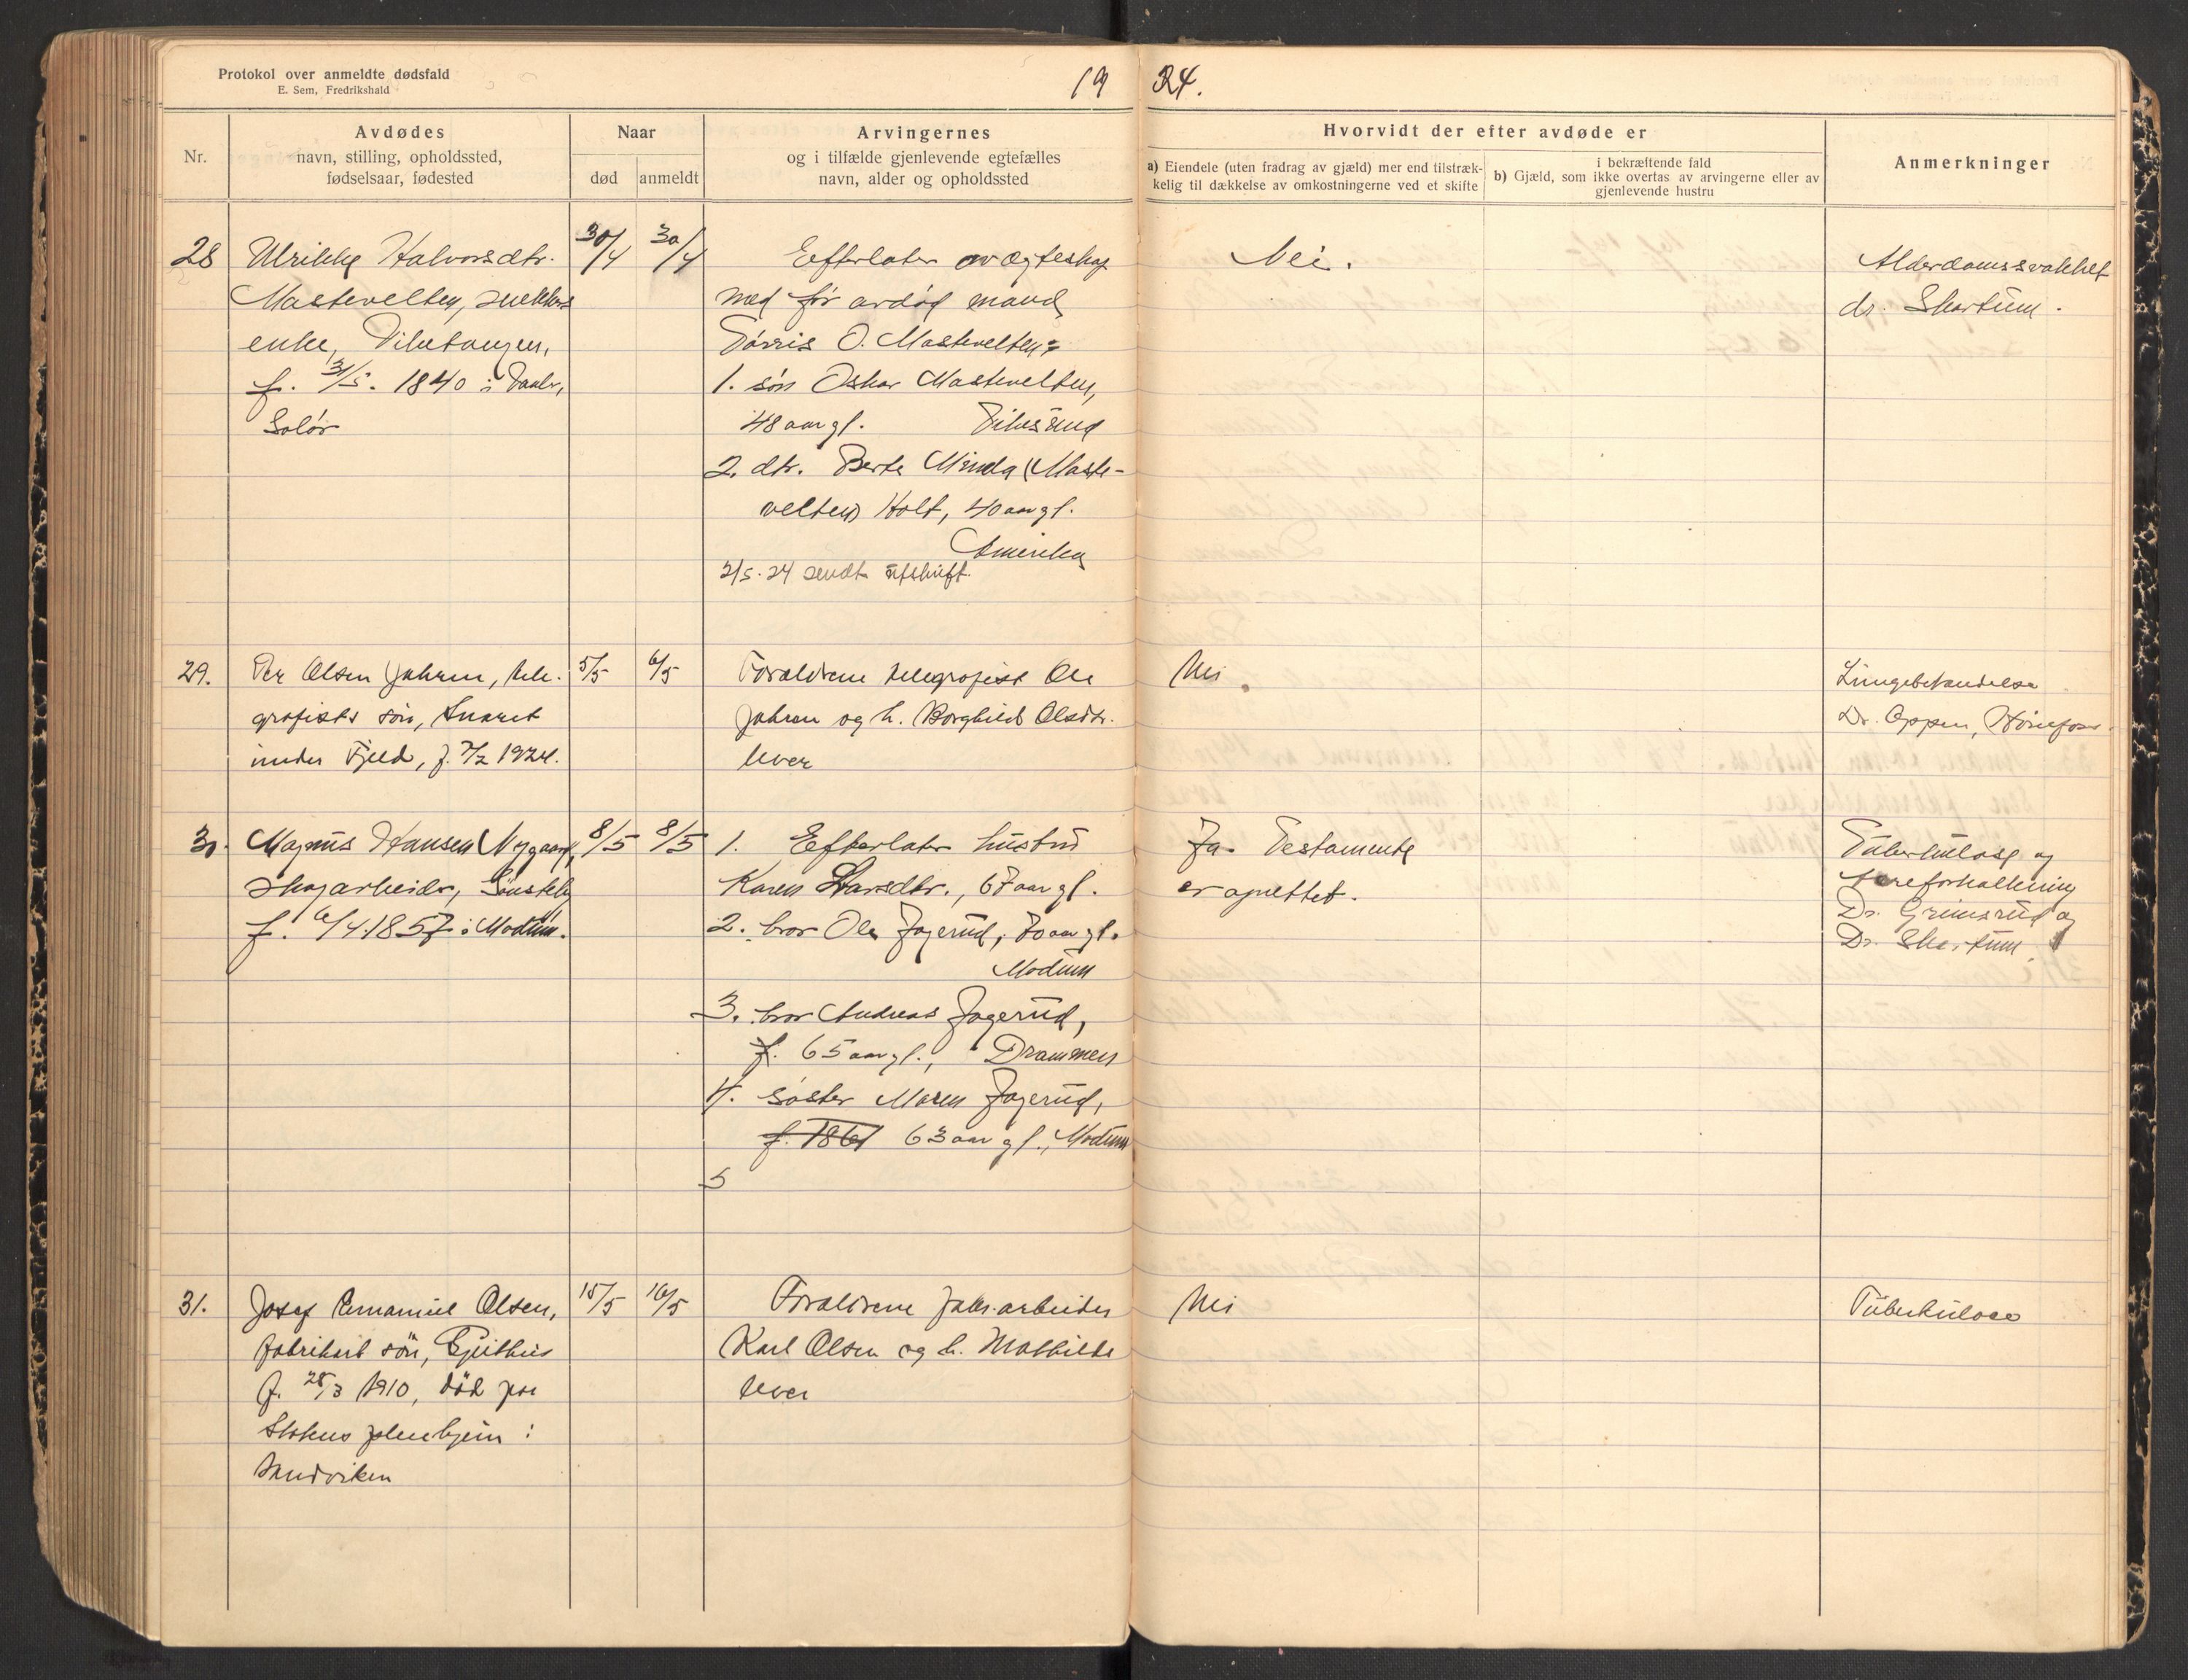 Protokol over anmeldte dødsfald
E. Sem, Fredrikshald
19 24.
Nr.
Avdødes
navn, stilling, opholdssted,
fødselsaar, fødested
Naar
død
anmeldt
Arvingernes
og i tilfælde gjenlevende egtefælles
navn, alder og opholdssted
Hvorvidt der efter avdøde er
a) Eiendele (uten fradrag av gjæld) mer end tilstræk-
kelig til dækkelse av omkostningerne ved et skifte
i bekræftende fald
b) Gjæld, som ikke overtas av arvingerne eller av
gjenlevende hustru
Anmerkninger
28
Ulrikke Halvorsdtr.
Mastevelten, snekkers
enke, Viketangen,
f. 31/5. 1840 i Vaaler,
Solør
30/4
30/4
Efterlater av ægteskap
med før avdød mand
Tørris O. Mastevelten:
1. søn Oskar Mastevelten,
48 aar gl. Vikesund
2. dtr. Berte Minda (Maste-
velten) Holt, 40 aar gl.
Amerika
2/5.24 sendt utskrift.
Nei.
Alderdomssvakhet
dr. Skartum.
29.
Per Olsen Jahren, tele-
grafists søn, Snaret
under Fjeld, f. 7/2 1924.
5/5
6/5
Forældrene telegrafist Ole
Jahren og h. Borghild Olsdtr.
lever
Nei.
Lungebetændelse
Dr. Oppen, Hønefoss.
30.
Magnus Hansen Nygaard,
skogarbeider, Sønsteby
f. 6/4.1857 i Modum.
8/5
8/5
1. Efterlater hustru
Karen Larsdtr., 67 aar gl.
2. bror Ole Jagerud, 70 aar gl.
Modum
3. bror Andreas Jagerud,
f. 65 aar gl., Drammen
4. søster Maren Jagerud,
f. 1861 63 aar gl., Modum
5
Ja. Testamente
er oprettet.
Tuberkulose og
Areforkalkning
Dr. Grimsrud og
Dr. Skartum.
31.
Josef Emanuel Olsen,
fabrikarb søn, Gjethus
f. 28/3 1910, død paa
Statens pleiehjem i
Sandviken
15/5
16/5
Forældrene fabr.arbeider
Karl Olsen og h. Mathilde
lever
Nei
Tuberkulose